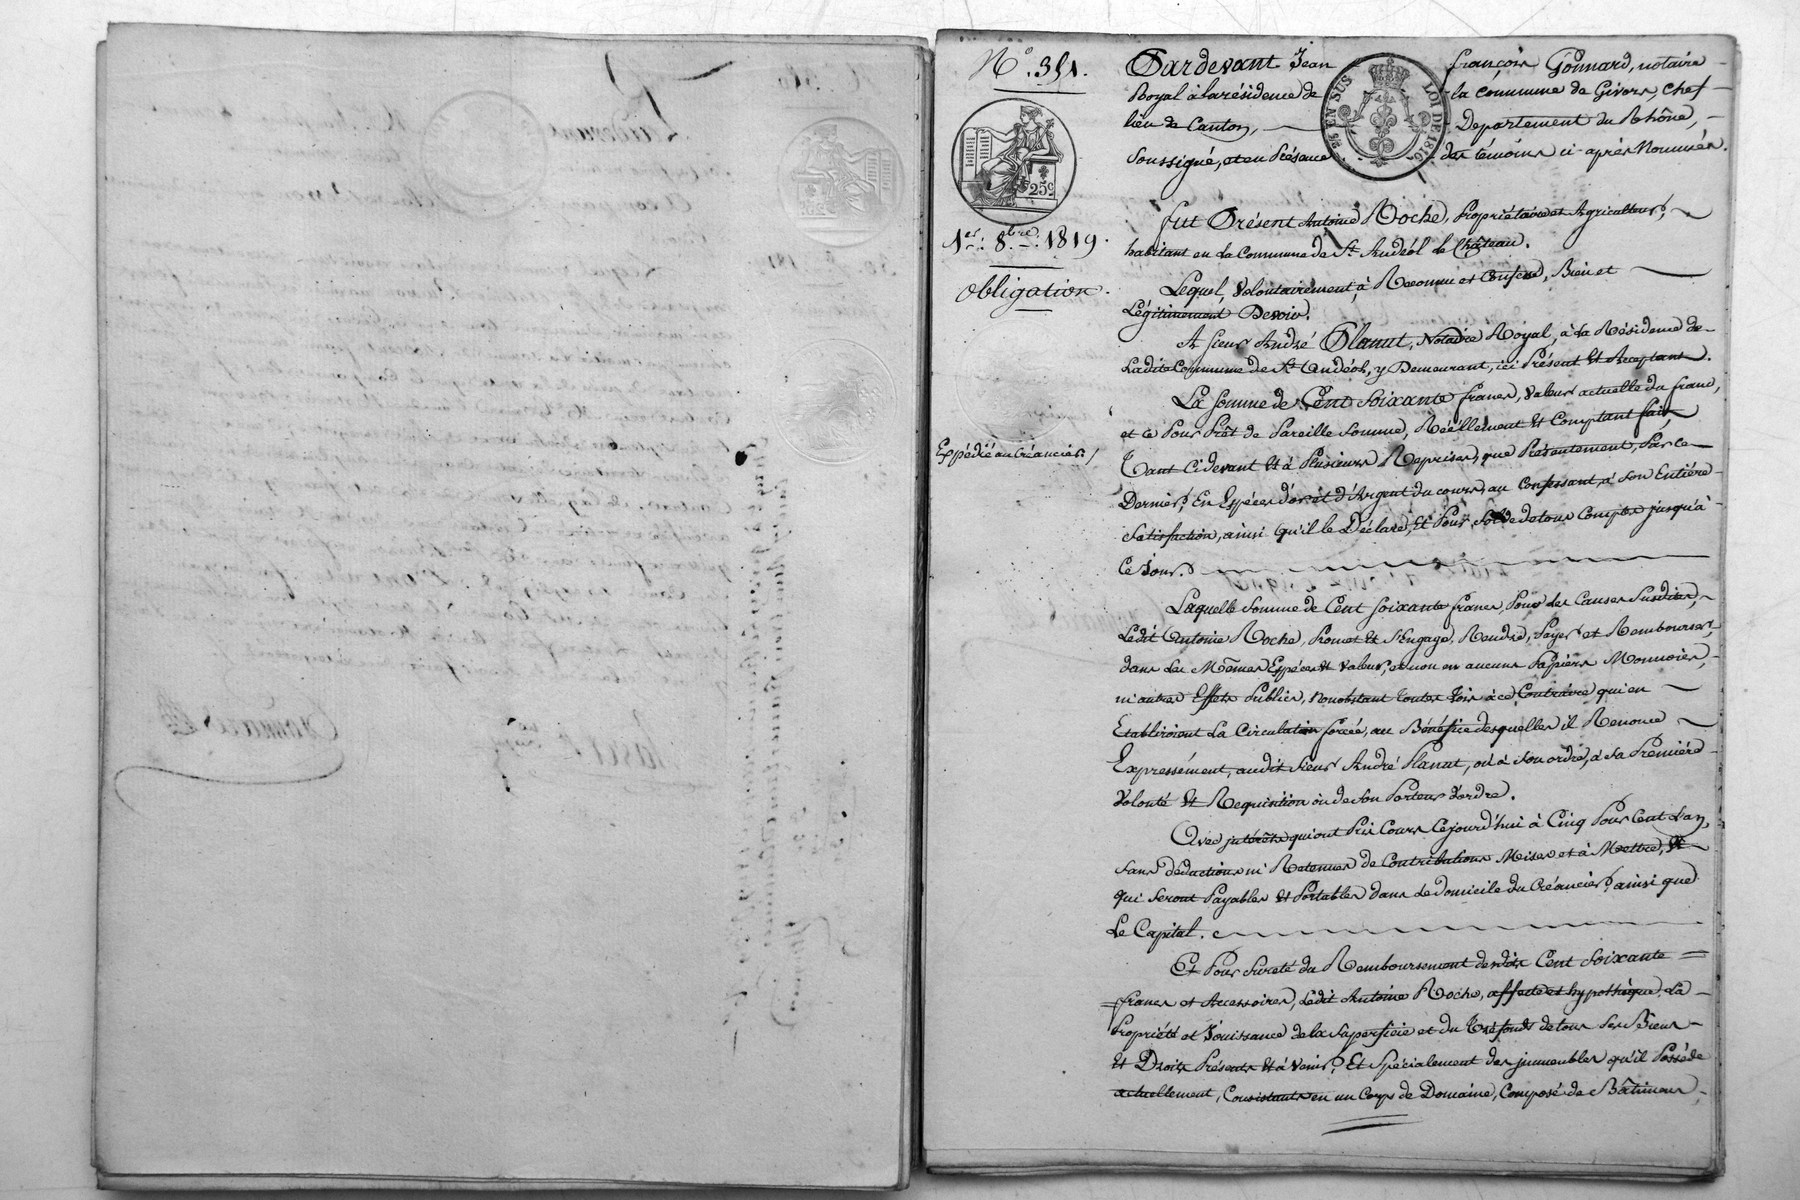 N.° 351.
25 c.
1.er 8.bre 1819.
Obligation.
Expédié au Créancier /
EN SUS LOI DE 1816
Pardevant Jean françois Gonnard, notaire
Royal à la résidence de la commune de Givors, Chef
lieu de Canton, Departement du Rhône,
Soussigné, et en Présence des témoins ci-après Nommés.
fut Présent Antoine Roche, Propriétaire et Agriculteur,
habitant en la Commune de St. Andéol le Château.
Lequel, volontairement, à Reconnu et Confessé, Bien et
Légitimement Devoir.
A sieur André Planut, Notaire Royal, à la Résidence de
Ladite Commune de St. Andéol, y Demeurant, ici Présent et Acceptant.
La somme de Cent Soixante francs, valeur actuelle du franc,
et ce Pour Prêt de Pareille Somme, Réellement et Comptant fait,
Tant Cidevant et à Plusieurs Reprises, que Présentement, Par ce
Dernier, En Espèces d'or et d'Argent du cours, au Confessant, à Son Entière
Satisfaction, ainsi qu'il le Déclare, Et Pour Solde de tous Comptes jusqu'à
Ce Jour.
Laquelle Somme de Cent soixante francs, Pour les Causes Susdites,
Ledit Antoine Roche, Promet et S'Engage, Rendre, Payer et Rembourser,
dans les Mêmes Espèces et valeur, et non en aucuns Papiers Monnoies,
ni autres Effets Publics, Nonobstant toutes Loix à ce Contraire qui en
Etabliroient La Circulation forcée, au Bénéfice desquelles il Renonce
Expressément, audit Sieur André Planut, où à Son ordre, à Sa Première
Volonté et Requisition où de Son Porteur d'ordre.
Avec jntérêts qui ont Pris Cours Cejourd'hui à Cinq Pour Cent L'an,
Sans déductions ni Retenues de Contributions Mises et à Mettre, et
qui Seront Payables et Portables dans Le domicile du Créancier, ainsi que
Le Capital.
Et Pour Sureté du Remboursement desdits Cent Soixante
francs et Accessoires, Ledit Antoine Roche, affecte et hypothèque, La
Propriété et Jouissance de la Superficie et du Tréfonds de tous Ses Biens
Et Droits Présents et à Venir, Et Spécialement des jmmeubles qu'il Possède
actuellement, Consistants en un Corps de Domaine, Composé de Bâtimens,